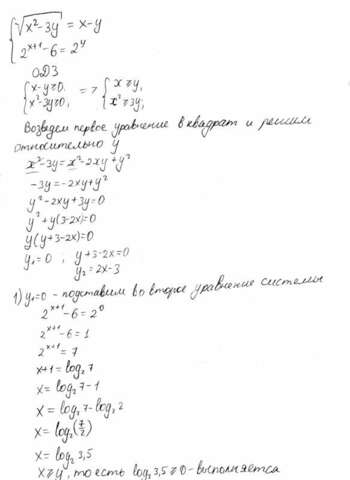 √(x²-3y) = x-y
2^(x+1) - 6 = 2^y
ОДЗ
{x-y≥0, => {x≥y,
{x²-3y≥0, {x²≥3y,
Возведем первое уравнение в квадрат и решим
относительно y
x²-3y=x²-2xy+y²
-3y=-2xy+y²
y²-2xy+3y=0
y²+y(3-2x)=0
y(y+3-2x)=0
y₁=0, y+3-2x=0
y₂=2x-3
1) y₁=0 - подставим во второе уравнение системы
2^(x+1) - 6 = 2⁰
2^(x+1) - 6 = 1
2^(x+1) = 7
x+1 = log₂ 7
x = log₂ 7 - 1
x = log₂ 7 - log₂ 2
x = log₂ (7/2)
x = log₂ 3,5
x≥y, то есть log₂ 3,5 ≥ 0 - выполняется